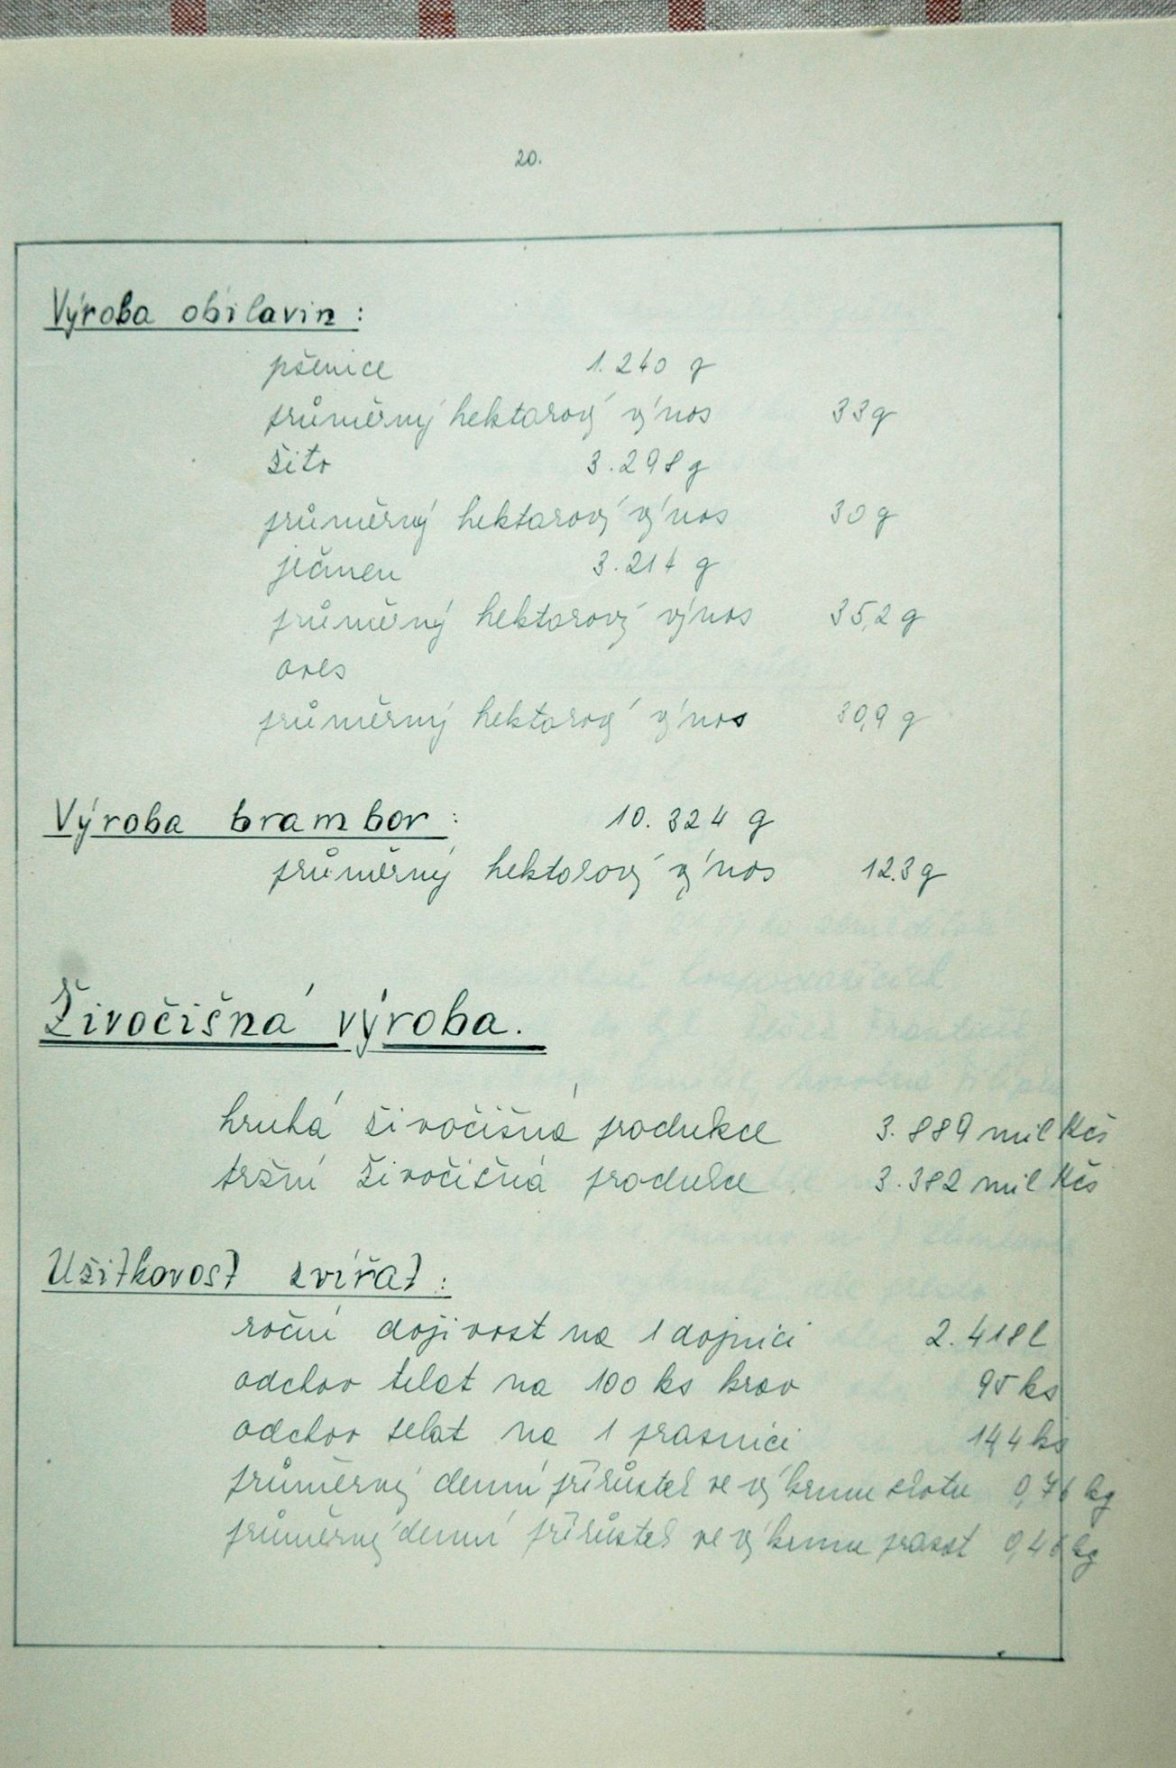 20.
Výroba obilavin:
pšenice 1.240 q
průměrný hektarový výnos 33 q
žito 3.298 q
průměrný hektarový výnos 30 q
ječmen 3.214 q
průměrný hektarový výnos 35,2 q
oves
průměrný hektarový výnos 30,9 q
Výroba brambor: 10.324 q
průměrný hektarový výnos 123 q
Živočišná výroba.
hrubá živočišná produkce 3.889 mil Kčs
tržní živočišná produkce 3.382 mil Kčs
Užitkovost zvířat:
roční dojivost na 1 dojnici 2.418 l
odchov telat na 100 ks krav 95 ks
odchov selat na 1 prasnici 14,4 ks
průměrný denní přírůstek ve výkrmu skotu kg
průměrný denní přírůstek ve výkrmu prasat kg